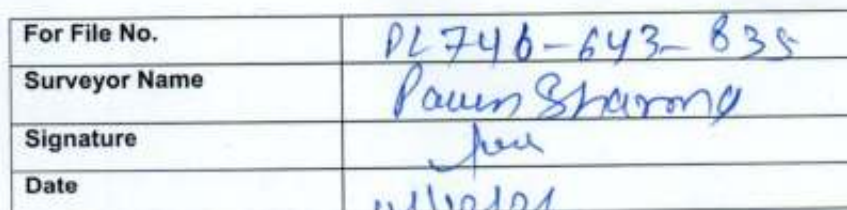 For File No. PL746-643-835
Surveyor Name Pawan Sharma
Signature
Date